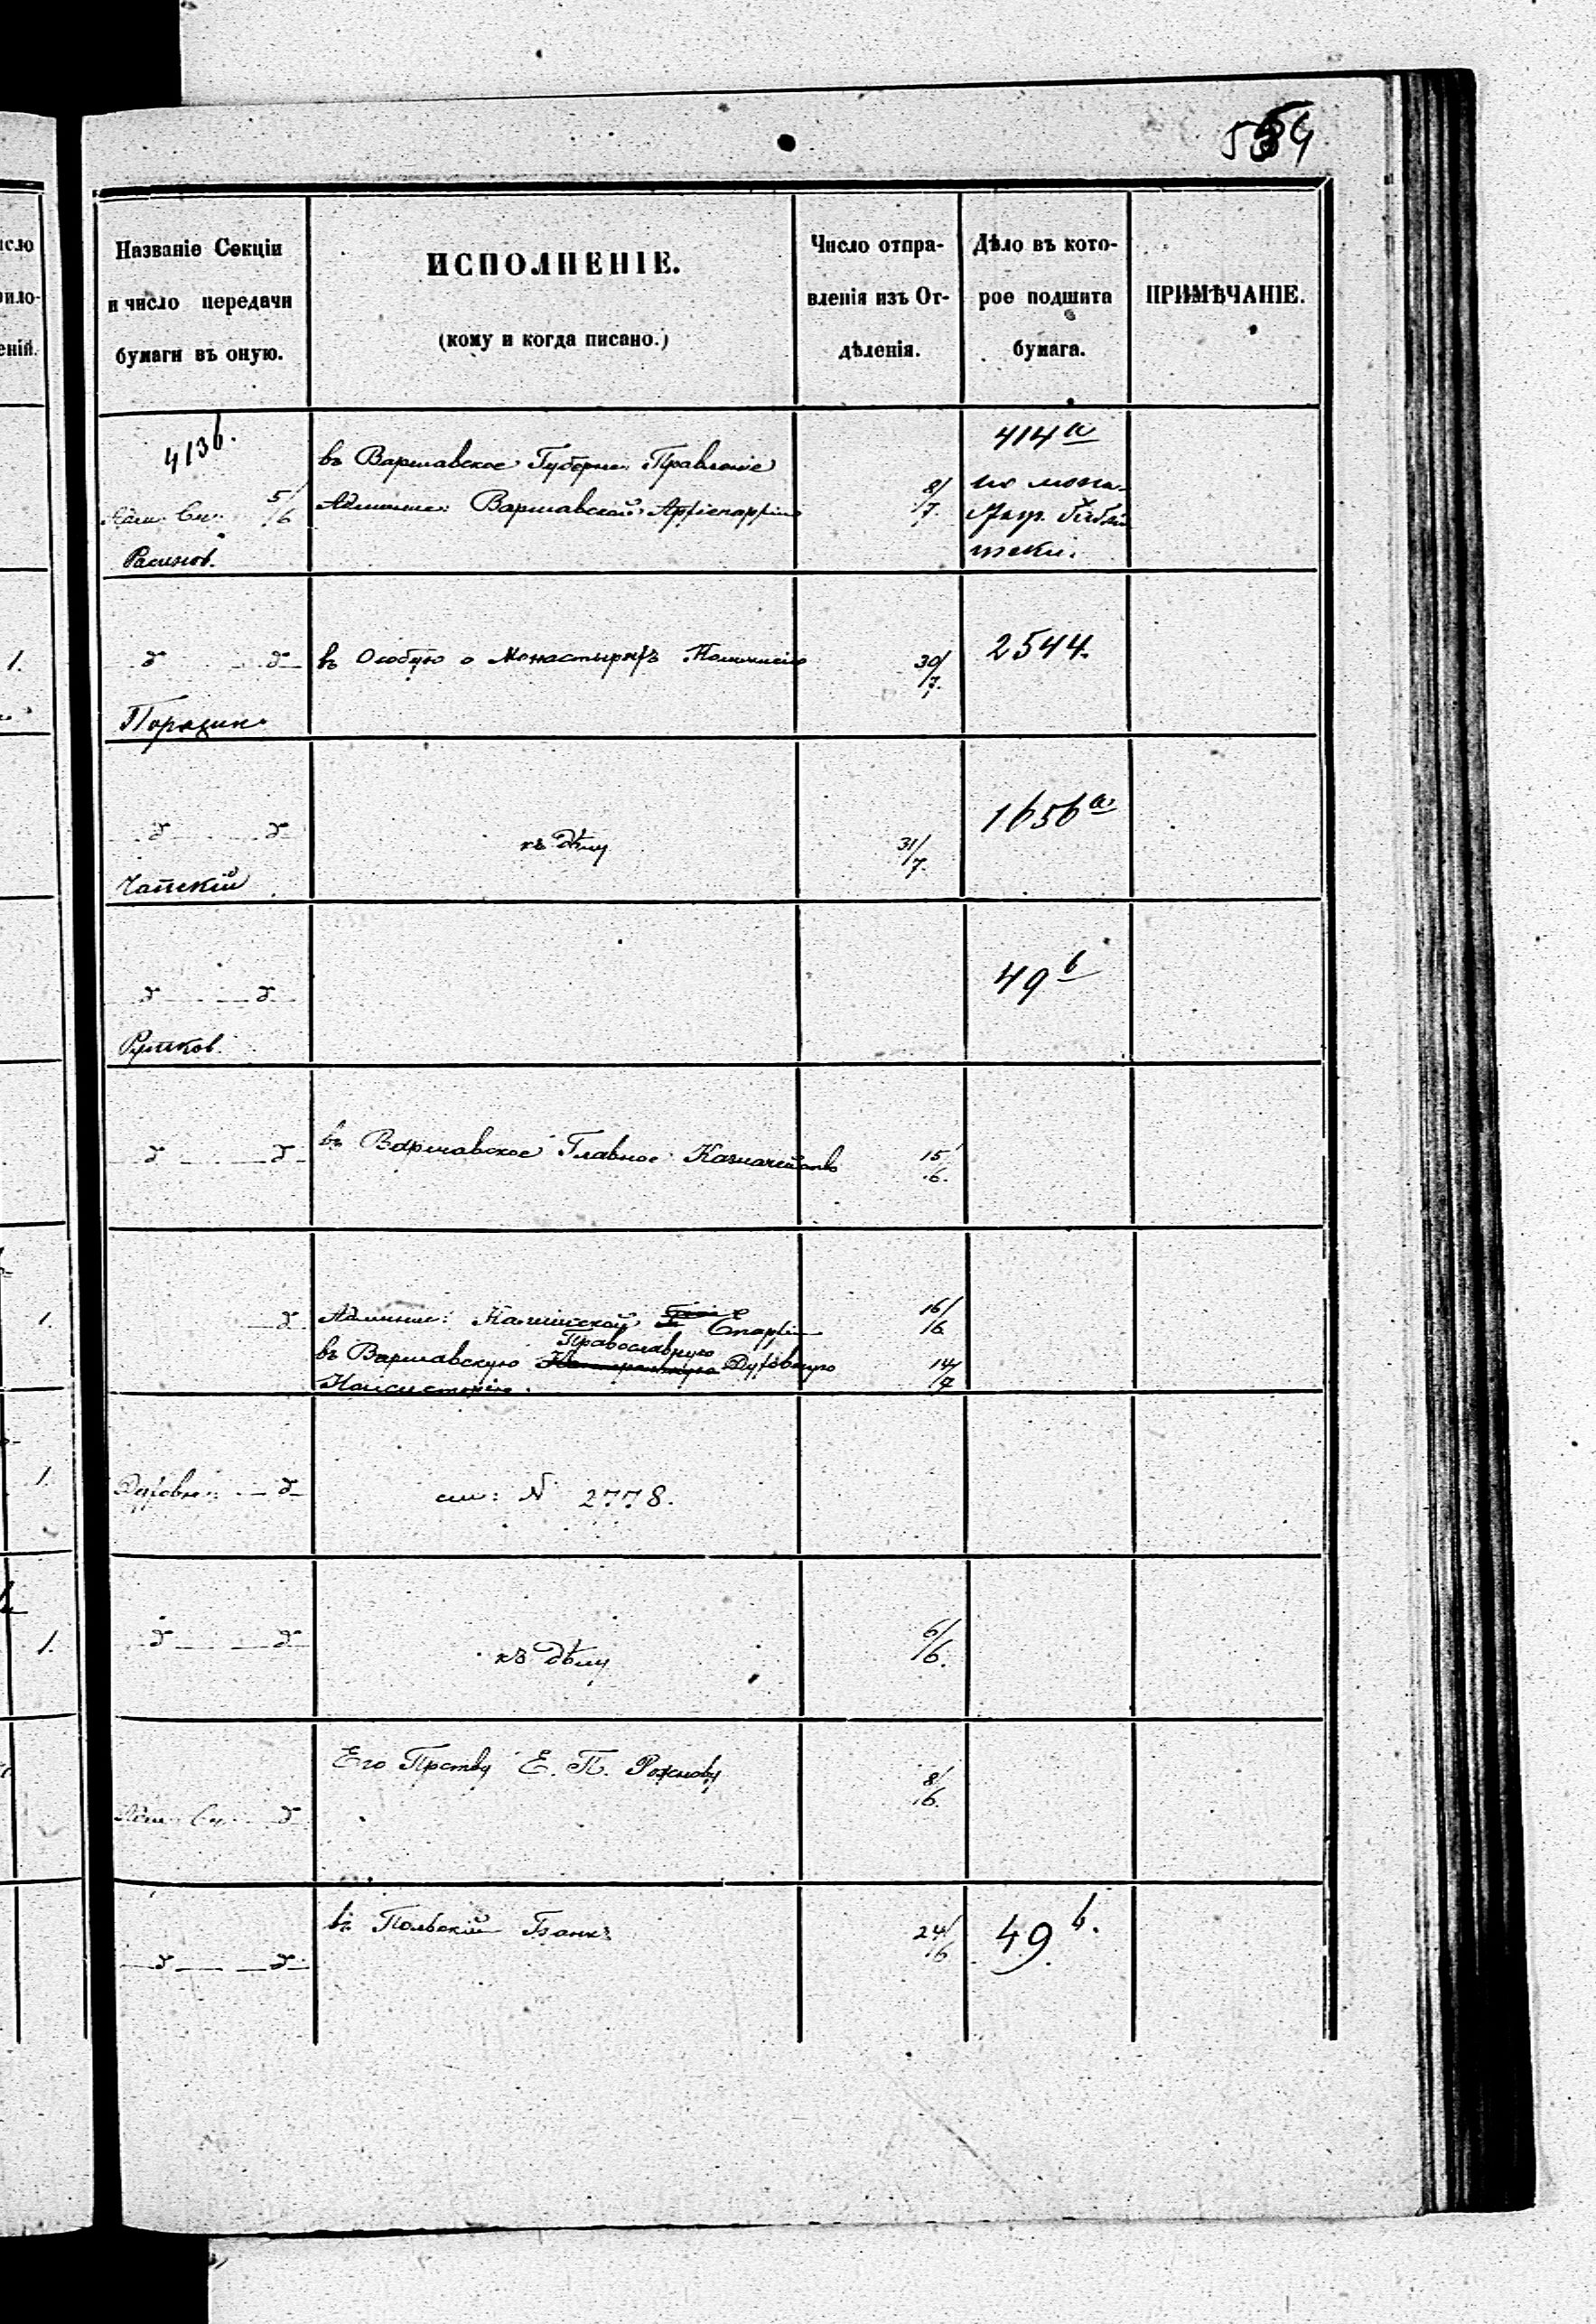 554
Названіе Секціи
и число передачи
бумаги въ оную.
ИСПОЛНЕНІЕ.
(кому и когда писано.)
Число отпра-
вленія изъ От-
дѣленія.
Дѣло въ кото-
рое подшита
бумага.
ПРИМѢЧАНІЕ.
исло
рило-
еній.
413б.
5/6
въ Варшавское Губерн: Правленіе
Админис: Варшавской Архіепархіи
8/7
414 а
по мона-
библіо
теки.
1.
д д
въ Особую о Монастыряхъ Коммисію
30/7.
2544.
д д
Чапскій
къ дѣлу
31/7.
1656 а
д д
49 b
д д
въ Варшавское Главное Казначейство
15/6.
1.
д
Админис: Калишской Епархіи
16/6
Православную
въ Варшавскую Духовную
Консисторію.
14/7
1.
Духовн: д
см: N 2778.
1.
д д
къ дѣлу
6/6.
Его Прству Е. П. Рожнову
8/6.
Адм: Сп: д
въ Польскій Банкъ
24/6
49 b.
д д